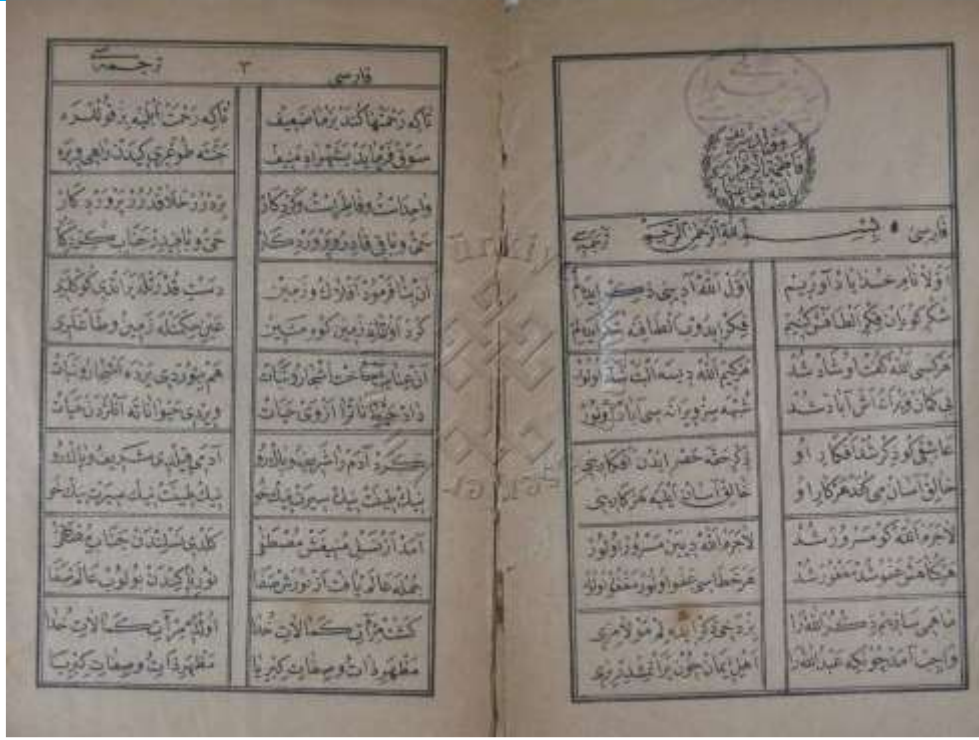 مولد شریف
فاطمة الزهرا
رضی الله تعالی عنها
فارسی
بسم الله الرحمن الرحیم
ترجمه‌سی
اولا نام خدا یاد آوریم
شکر گویان فکر الطافش کنیم
هر کسی الله گفت او شاد شد
بی کمان ویرانه‌اش آباد شد
عاشقی کو ذکر شد افکار او
خالق آسان می کند هر کار او
لاجرم الله گو مسرور شد
هر گناهش عفو شد مغفور شد
ما همی سازیم ذکر الله را
واجب آمد چونکه عبد الله را
اول الله آدینی ذکر ایده‌لم
فکر ایدوب الطافنه شکر ایده‌لم
هر کیم الله دیسه البت شاد اولور
شبهه سز ویرانه سی آباد اولور
ذکر حقه حصر ایدن افکارینی
خالق آسان ایلیه هر کارینی
لاجرم الله دیین مسرور اولور
هر خطاسی عفو اولور مغفور اولور
بز دخی ذکر ایده‌لم مولامزی
اهل ایمان چون یراتمشدر بزی
فارسی
٣
ترجمه‌سی
تا که رحمتها کند بر ما ضعیف
سوق فرماید بشهراه منیف
واحدست و فاطرست و کردکار
حی و باقی قادر و پروردکار
آن بنا فرمود افلاک و زمین
کرد
زمین کوه متین
آن
ساخت اشجار و نبات
داد حیواناترا از وی حیات
کرد آدم را شریف و پاک رو
نیک طینت نیک سیرت نیک خو
آمد از نسل
مصطفی
جمله عالم یافت از نورش صفا
کشت مرآت کمالات خدا
مظهر ذات و صفات کبریا
تا که رحمت ایلیه بز قوللره
جنته طوغری کیدن راهی ویره
بردر خلاقدر پروردکار
حی و
جناب کردکار
دست قدرتله یراتدی کوکلری
زمین و طاغلری
هم بیوردی یرده اشجار و نبات
ویردی حیواناته آنلردن حیات
آدمی قیلدی شریف و پاک رو
نیک طینت نیک سیرت نیک خو
کلدی نسلندن جناب مصطفی
نور پاکیندن بولوب عالم صفا
اولدی مرآت کمالات خدا
مظهر ذات و صفات کبریا